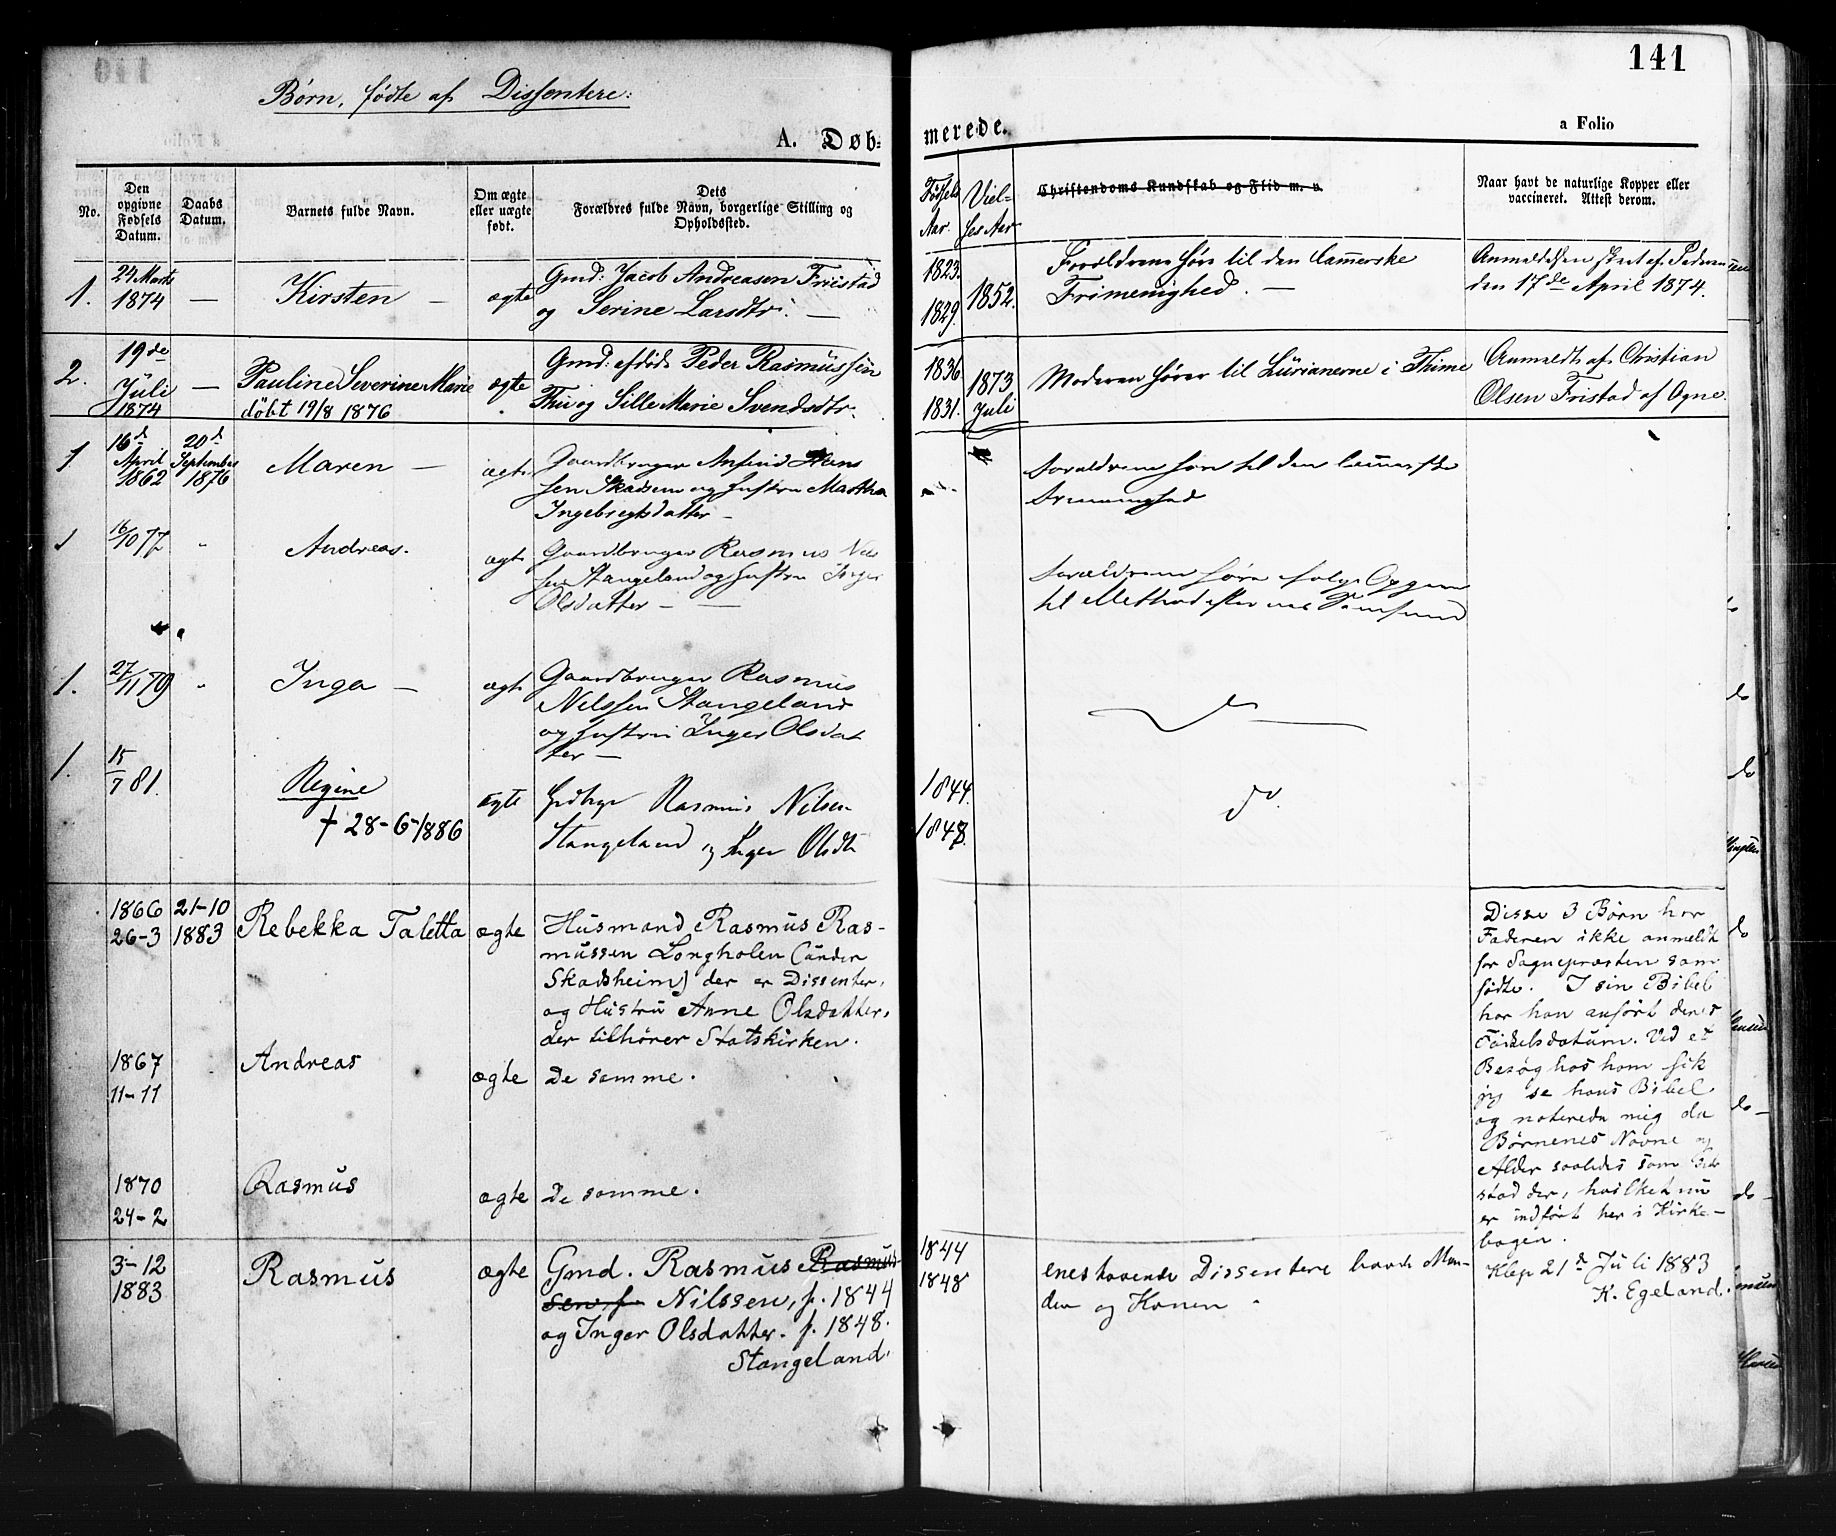 141
Børn, fødte af Dissentere:
A. Døb-
merede.
a Folio
No.
Den opgivne Fødsels Datum.
Daabs Datum.
Barnets fulde Navn.
Om ægte eller uægte født.
Dets Forældres fulde Navn, borgerlige Stilling og Opholdssted.
Fødsels Aar.
Viel-
ses Aar
Christendoms Kundskab og Flid m. v.
Naar havt de naturlige Kopper eller vaccineret. Attest derom.
1.
24 Marts
1874
—
Kirsten —
ægte
Gmd: Jacob Andreasen Friestad
og Serine Larsdtr. —
1823.
1829.
1852.
Forældrene høre til den Lammerske
Frimenighed. —
Anmeldelsen skeet af Faderen
den 17de April 1874.
2.
19de
Juli
1874
—
Pauline Severine Marie
døbt 19/8 1876
ægte
Gmd: afdøde Peder Rasmussen
Thu og Sille Marie Svendsdtr.
1836
1831.
1873
Juli
Moderen hører til Lürianerne i Thime
Anmeldt af Christian
Olsen Fristad af Ogne.
1
16d
April
1862
20d
September
1876
Maren —
ægte
Gaardbruger Anfind Hans
sen Skadsem og Hustru Martha
Ingebregtsdatter —
Forældrene høre til den Lammerske
Frimenighed
1
16/10 77
"
Andreas.
ægte
Gaardbruger Rasmus Nils
sen Stangeland og Hustru Inger
Olsdatter —
Forældrene høre følge Opgave
til Methodisternes Samfund
1.
27/11 79
"
Inga —
ægte
Gaardbruger Rasmus
Nilssen Stangeland
og Hustru Inger Olsdat
ter —
do
1.
15/7 81.
Regine
† 28-6-1886
ægte
Rasmus Nilsen
Stangeland og Inger Olsdtr
1844.
1848.
do.
1866
26-3
21-10
1883
Rebekka Taletta
ægte
Husmand Rasmus Ras-
mussen Longholen (under
Skadsheim) der er Dissenter,
og Hustru Anne Olsdatter,
der tilhører Statskirken.
Disse 3 Børn har
Faderen ikke anmeldt
for Sognepræsten som
fødte. I sin Bibel
har han anført deres
Fødselsdatum. Ved et
Besøg hos ham fik
jeg se hans Bibel
og noterede mig da
Børnenes Navne og
Alder saaledes som det
stod der, hvilket nu
er indført her i Kirke-
bogen.
Klep 21de Juli 1883
K. Egeland.
1867
11-11
Andreas
ægte
De samme.
1870
24-2
Rasmus
ægte
De samme.
3-12
1883
Rasmus
ægte
Gmd. Rasmus Rasmus-
sen, f. Nilssen, f. 1844
og Inger Olsdatter. f. 1848.
Stangeland.
1844
1848
Dissentere baade Man-
den og Konen.